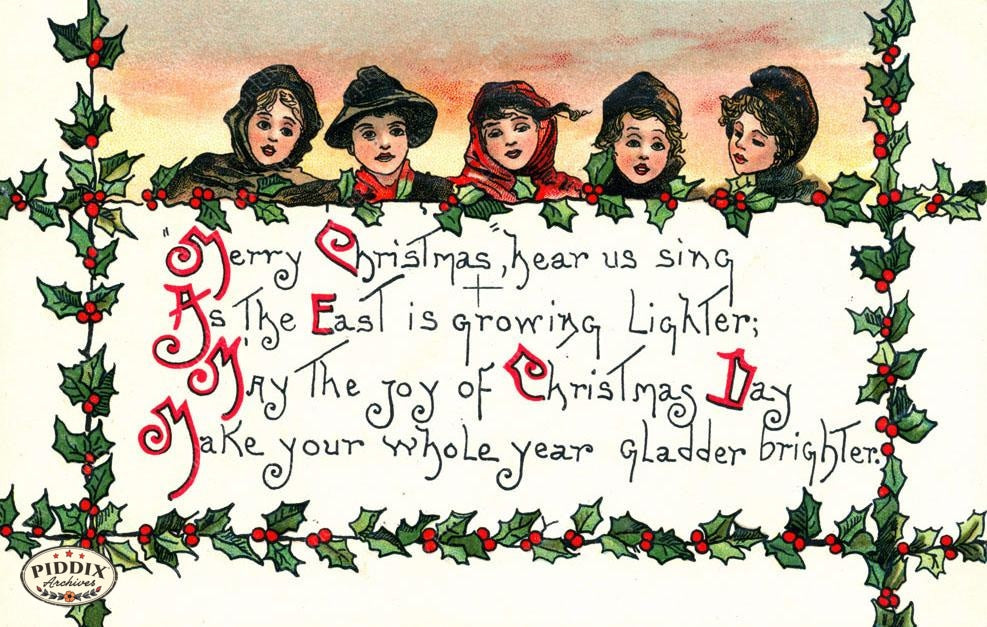 "Merry Christmas", hear us sing
As the East is growing Lighter;
May the joy of Christmas Day
Make your whole year gladder brighter.
PIDDIX
Archives